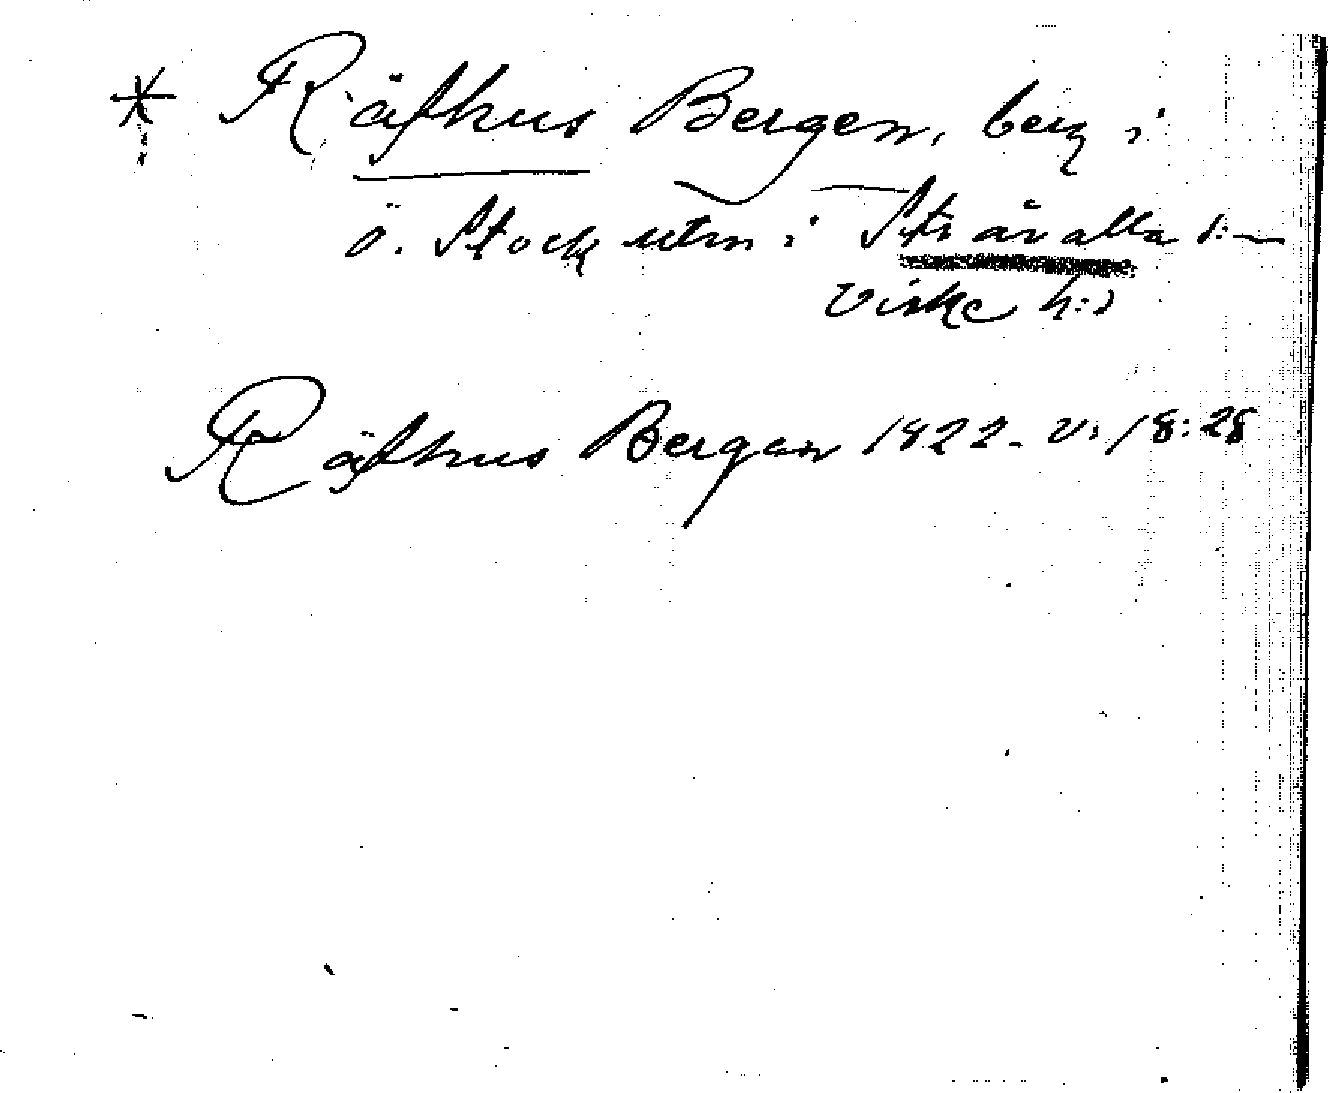 * Räfhus Bergen, berg i
ö. Stock utm i Stråvalla s:n
Viske h:d
Räfhus Bergen 1822. V. 18:28